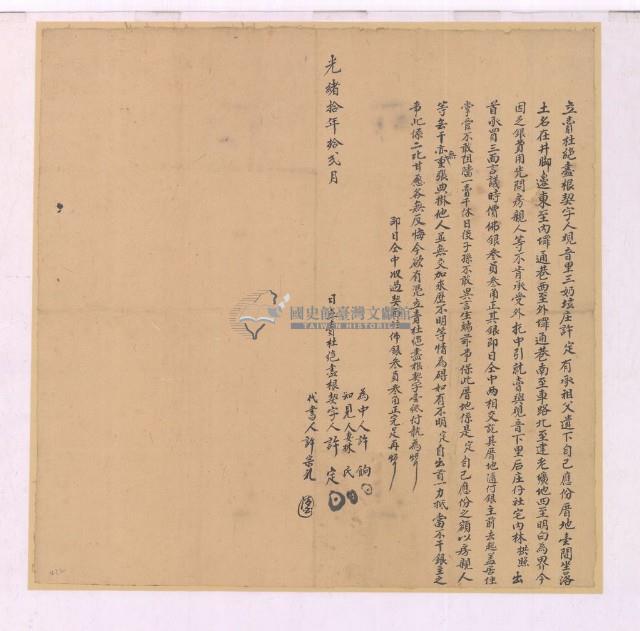 立賣杜絕盡根契字人觀音里三奶坛庄許定有承祖父遺下自己應份厝地壹間坐落
土名在井腳邊東至內墿通巷西至外墿通巷南至車路北至建老壙地四至明白為界今
因乏銀費用先問房親人等不肯承受外托中引就賣與觀音下里后庄仔社宅內林拱照出
首承買三面言議時價佛銀叁員叁角正其銀即日仝中兩相交訖其厝地隨付銀主前去起盖居住
掌管不敢阻擋一賣千休日後子孫不敢異言生端茅事保此厝地係是定自己應份之額以房親人
等無干亦無重張典掛他人並無交加來歷不明等情為碍如有不明定自出首一力抵當不干銀主之
事此係二比甘愿各無反悔今欲有憑立賣杜絕盡根契字壹紙付執為炤
即日仝中收過契內佛銀叁員叁角正完足再炤
為中人許
知見人妻林氏
光緒拾年拾弍月 日立賣杜絕盡根契字人許定
代書人許宗孔
國史館臺灣文獻館
TAIWAN HISTORICA